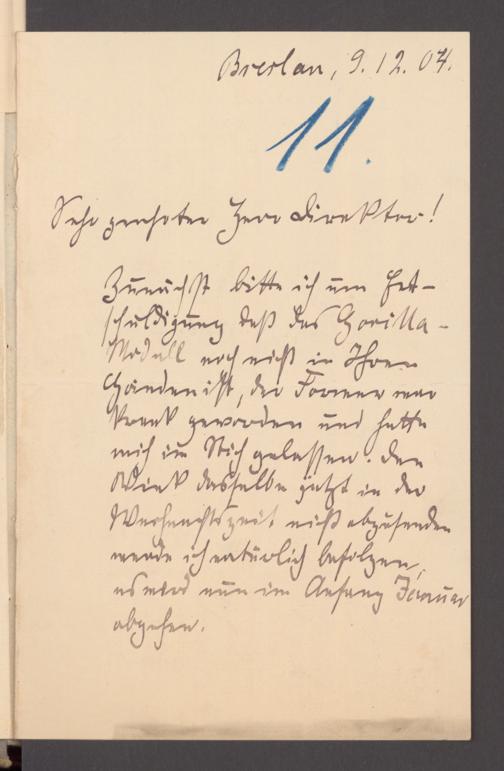 Breslau, 9.12.04.
11.
Sehr geehrter Herr Direktor!
Zunächst bitte ich um Ent-
schuldigung daß das Gorilla-
Modell noch nicht in Ihren
Händen ist, der Former war
krank geworden und hatte
mich im Stich gelassen. Den
Wink dasselbe jetzt in der
Weihnachtszeit nicht abzusenden
werde ich natürlich befolgen,
es wird nun im Anfang Januar
abgehen.